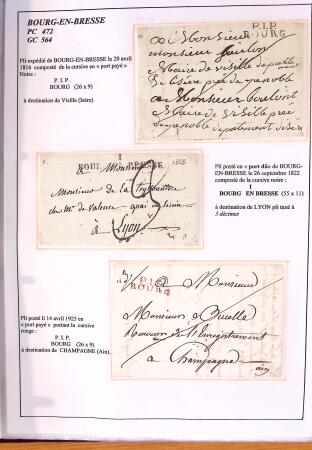 BOURG-EN-BRESSE
PC 472
GC 564
Pli expédié de BOURG-EN-BRESSE le 20 avril
1816 composté de la cursive en « port payé »
Noire :
P. I. P.
BOURG (26 x 9)
à destination de Visille (Isère)
P.I.P
BOURG
a Monsieur
monsieur
Maire de visille
a Monsieur
Maire de visille
Pli posté en « port dû » de BOURG-
EN-BRESSE le 26 septembre 1822
composté de la cursive noire :
I
BOURG EN BRESSE (55 x 11)
à destination de LYON pli taxé à
3 décimes
I
BOURG EN BRESSE
a Monsieur
Monsieur de la
à Lyon
Pli posté li 14 avril 1925 en
« port payé » portant la cursive
rouge :
P. I. P.
BOURG (26 x 9)
à destination de CHAMPAGNE (Ain).
P.I.P
BOURG
a Monsieur
Monsieur
Receveur de l'Enregistrement
a Champagne
ain